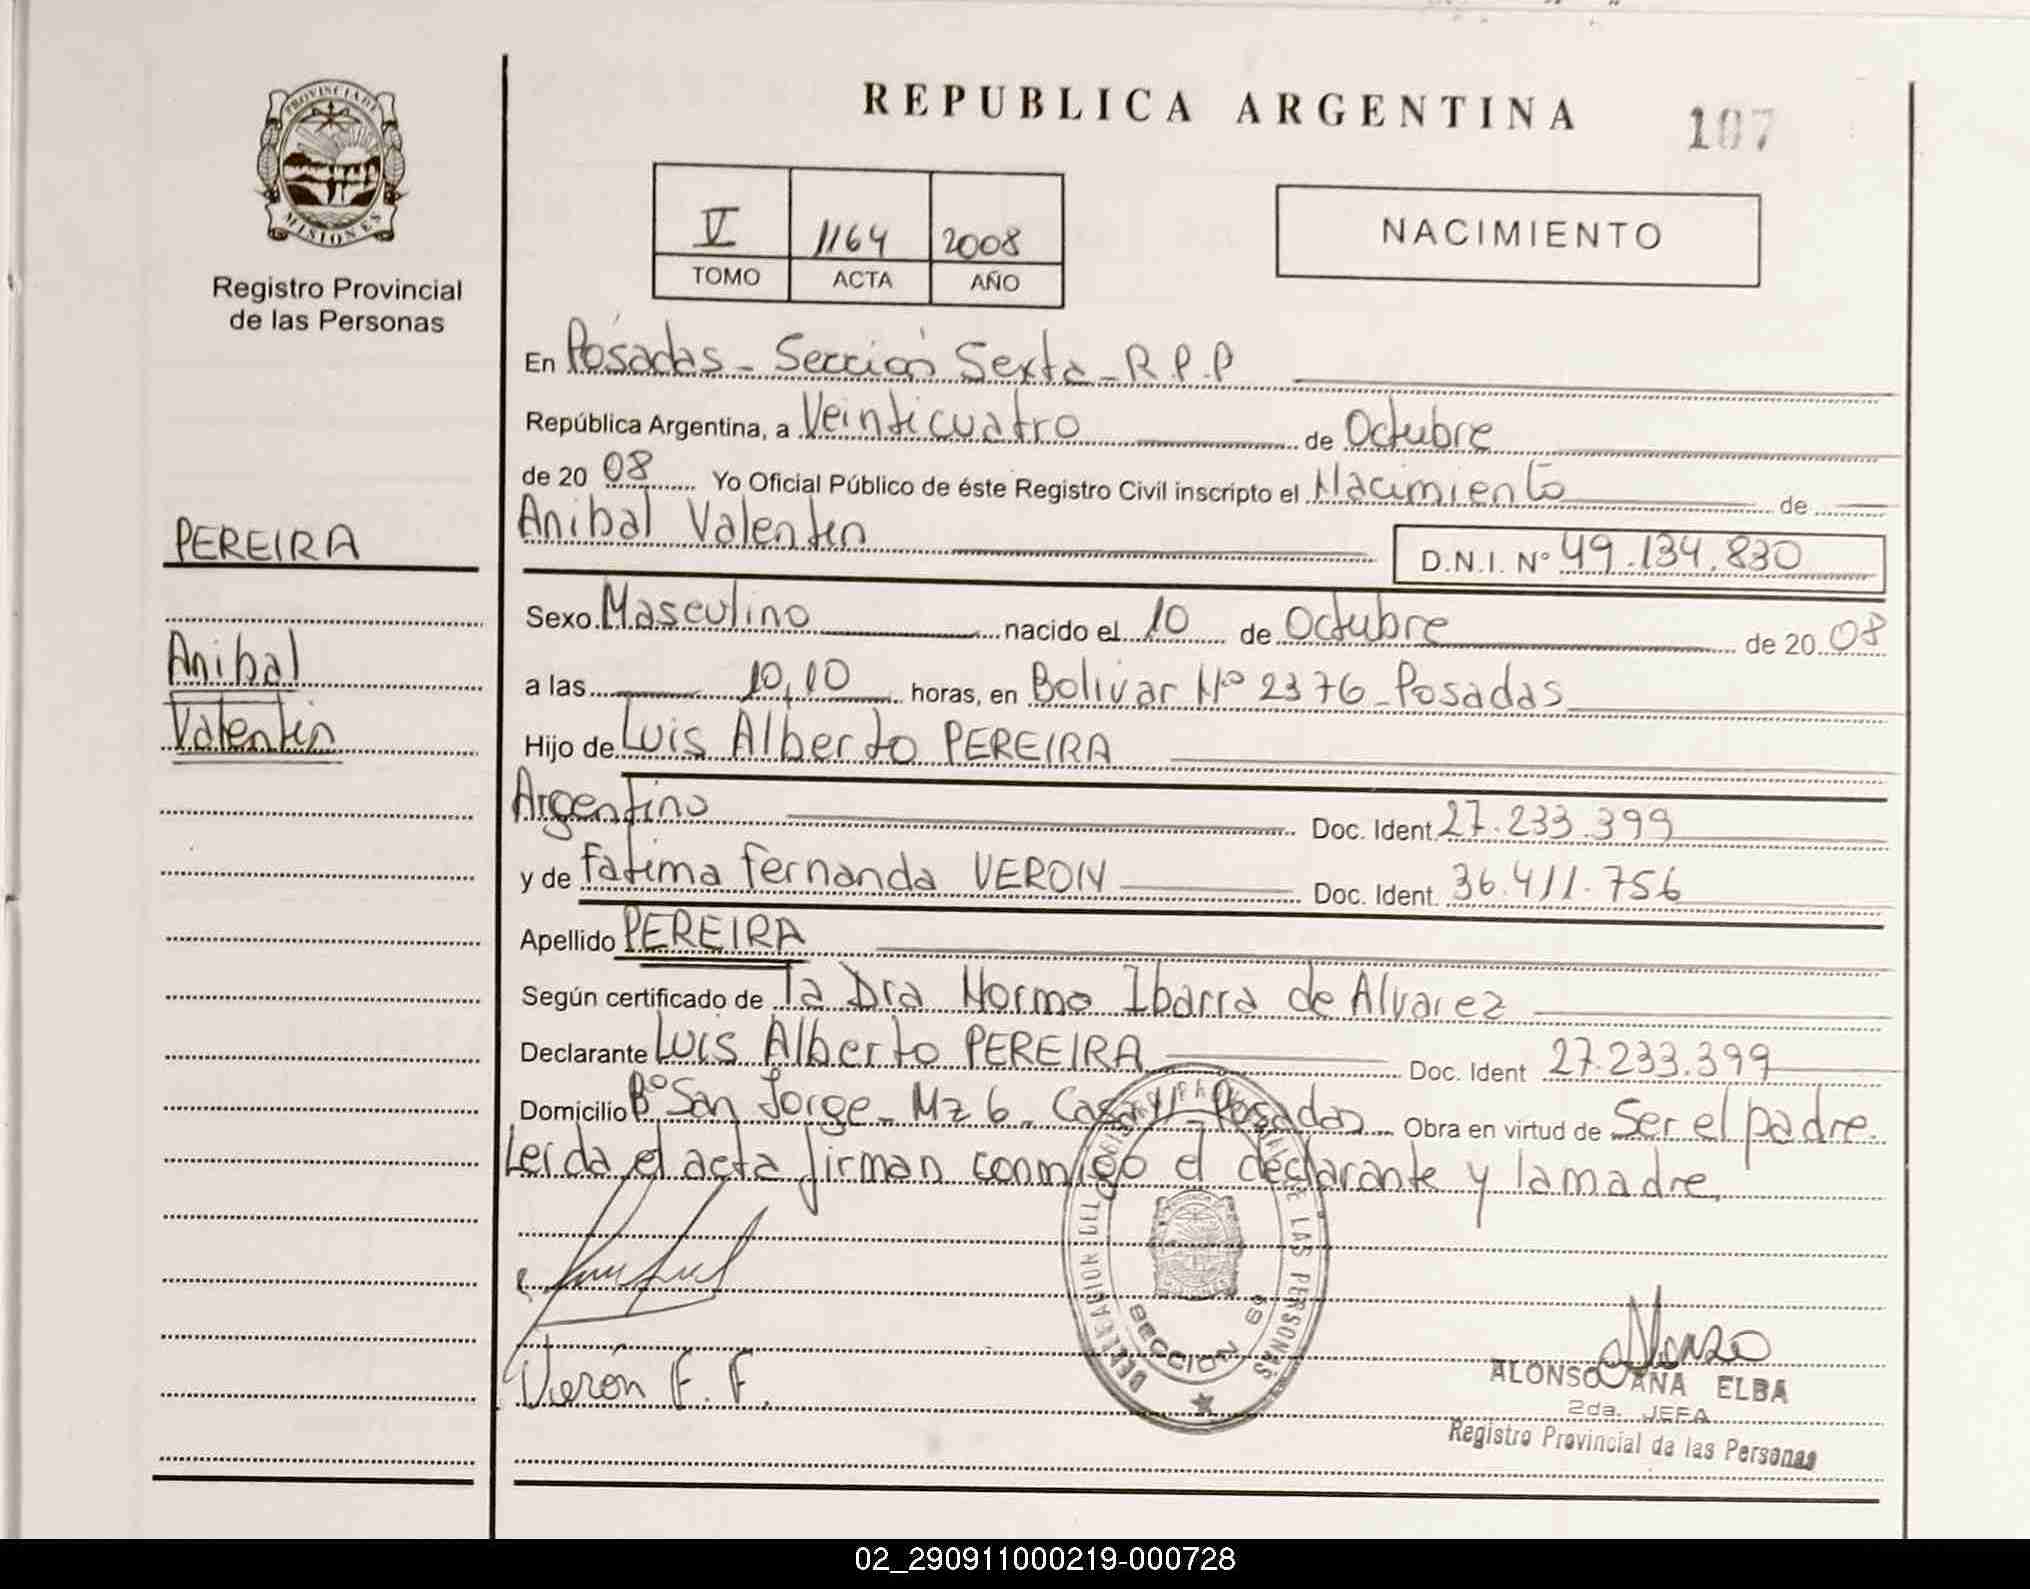 PROVINCIA DE
MISIONES
Registro Provincial
de las Personas
PEREIRA
Anibal
Valentin
REPUBLICA ARGENTINA
107
V 1164 2008
TOMO ACTA AÑO
NACIMIENTO
En Posadas - Sección Sexta - R.P.P
República Argentina, a Veinticuatro de Octubre
de 20 08 Yo Oficial Público de éste Registro Civil inscripto el Nacimiento de
Anibal Valentin D.N.I. Nº 49.134.830
Sexo Masculino nacido el 10 de Octubre de 20 08
a las 10,10 horas, en Bolivar Nº 2376 - Posadas
Hijo de Luis Alberto PEREIRA
Argentino Doc. Ident. 27.233.399
y de Fatima Fernanda VERON Doc. Ident. 36.411.756
Apellido PEREIRA
Según certificado de la Dra Norma Ibarra de Alvarez
Declarante Luis Alberto PEREIRA Doc. Ident 27.233.399
Domicilio Bº San Jorge - Mz 6 - Casa - Posadas - Obra en virtud de Ser el padre.
Leida el acta firman conmigo el declarante y la madre.
DELEGACION DEL REGISTRO PROVINCIAL DE LAS PERSONAS
SECCION 6º
Verón F. F.
Alonso
ALONSO ANA ELBA
2da. JEFA
Registro Provincial de las Personas
02_290911000219-000728